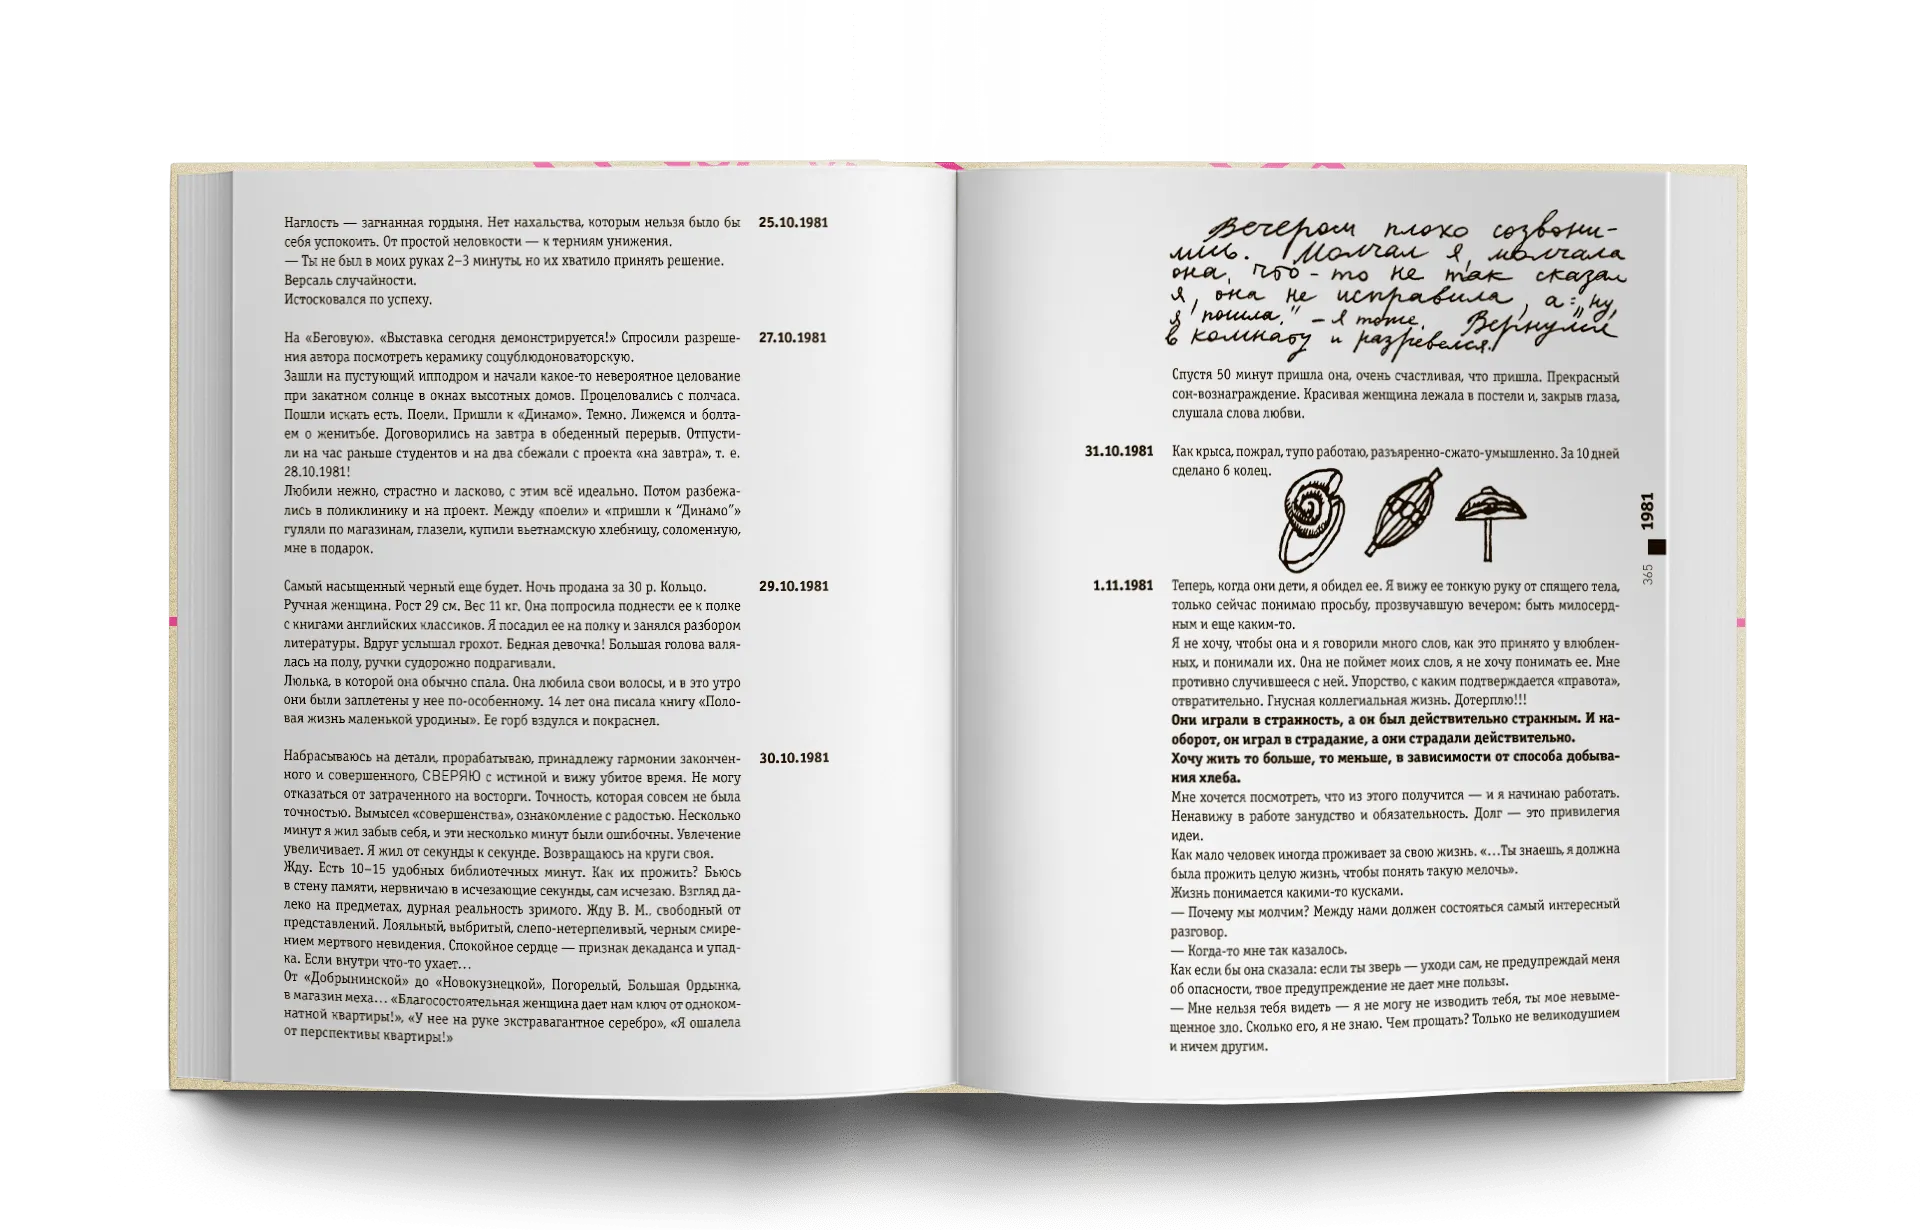 Наглость — загнанная гордыня. Нет нахальства, которым нельзя было бы
25.10.1981
себя успокоить. От простой неловкости — к терниям унижения.
— Ты не был в моих руках 2–3 минуты, но их хватило принять решение.
Версаль случайности.
Истосковался по успеху.
На «Беговую». «Выставка сегодня демонстрируется!» Спросили разреше-
27.10.1981
ния автора посмотреть керамику соцублюдоноваторскую.
Зашли на пустующий ипподром и начали какое-то невероятное целование
при закатном солнце в окнах высотных домов. Процеловались с полчаса.
Пошли искать есть. Поели. Пришли к «Динамо». Темно. Лижемся и болта-
ем о женитьбе. Договорились на завтра в обеденный перерыв. Отпусти-
ли на час раньше студентов и на два сбежали с проекта «на завтра», т. е.
28.10.1981!
Любили нежно, страстно и ласково, с этим всё идеально. Потом разбежа-
лись в поликлинику и на проект. Между «поели» и «пришли к “Динамо”»
гуляли по магазинам, глазели, купили вьетнамскую хлебницу, соломенную,
мне в подарок.
Самый насыщенный черный еще будет. Ночь продана за 30 р. Кольцо.
29.10.1981
Ручная женщина. Рост 29 см. Вес 11 кг. Она попросила поднести ее к полке
с книгами английских классиков. Я посадил ее на полку и занялся разбором
литературы. Вдруг услышал грохот. Бедная девочка! Большая голова валя-
лась на полу, ручки судорожно подрагивали.
Люлька, в которой она обычно спала. Она любила свои волосы, и в это утро
они были заплетены у нее по-особенному. 14 лет она писала книгу «Поло-
вая жизнь маленькой уродины». Ее горб вздулся и покраснел.
Набрасываюсь на детали, прорабатываю, принадлежу гармонии закончен-
30.10.1981
ного и совершенного, СВЕРЯЮ с истиной и вижу убитое время. Не могу
отказаться от затраченного на восторги. Точность, которая совсем не была
точностью. Вымысел «совершенства», ознакомление с радостью. Несколько
минут я жил забыв себя, и эти несколько минут были ошибочны. Увлечение
увеличивает. Я жил от секунды к секунде. Возвращаюсь на круги своя.
Жду. Есть 10–15 удобных библиотечных минут. Как их прожить? Бьюсь
в стену памяти, нервничаю в исчезающие секунды, сам исчезаю. Взгляд да-
леко на предметах, дурная реальность зримого. Жду В. М., свободный от
представлений. Лояльный, выбритый, слепо-нетерпеливый, черным смире-
нием мертвого невидения. Спокойное сердце — признак декаданса и упад-
ка. Если внутри что-то ухает…
От «Добрынинской» до «Новокузнецкой», Погорелый, Большая Ордынка,
в магазин меха… «Благосостоятельная женщина дает нам ключ от одноком-
натной квартиры!», «У нее на руке экстравагантное серебро», «Я ошалела
от перспективы квартиры!»
Вечером плохо созвони-
лись. Молчал я, молчала
она, что-то не так сказал
я, она не исправила, а: „ну,
я пошла." – Я тоже. Вернулся
в комнату и разревелся.
Спустя 50 минут пришла она, очень счастливая, что пришла. Прекрасный
сон-вознаграждение. Красивая женщина лежала в постели и, закрыв глаза,
слушала слова любви.
31.10.1981
Как крыса, пожрал, тупо работаю, разъяренно-сжато-умышленно. За 10 дней
сделано 6 колец.
1.11.1981
Теперь, когда они дети, я обидел ее. Я вижу ее тонкую руку от спящего тела,
только сейчас понимаю просьбу, прозвучавшую вечером: быть милосерд-
ным и еще каким-то.
Я не хочу, чтобы она и я говорили много слов, как это принято у влюблен-
ных, и понимали их. Она не поймет моих слов, я не хочу понимать ее. Мне
противно случившееся с ней. Упорство, с каким подтверждается «правота»,
отвратительно. Гнусная коллегиальная жизнь. Дотерплю!!!
Они играли в странность, а он был действительно странным. И на-
оборот, он играл в страдание, а они страдали действительно.
Хочу жить то больше, то меньше, в зависимости от способа добыва-
ния хлеба.
Мне хочется посмотреть, что из этого получится — и я начинаю работать.
Ненавижу в работе занудство и обязательность. Долг — это привилегия
идеи.
Как мало человек иногда проживает за свою жизнь. «…Ты знаешь, я должна
была прожить целую жизнь, чтобы понять такую мелочь».
Жизнь понимается какими-то кусками.
— Почему мы молчим? Между нами должен состояться самый интересный
разговор.
— Когда-то мне так казалось.
Как если бы она сказала: если ты зверь — уходи сам, не предупреждай меня
об опасности, твое предупреждение не дает мне пользы.
— Мне нельзя тебя видеть — я не могу не изводить тебя, ты мое невыме-
щенное зло. Сколько его, я не знаю. Чем прощать? Только не великодушием
и ничем другим.
1981
365